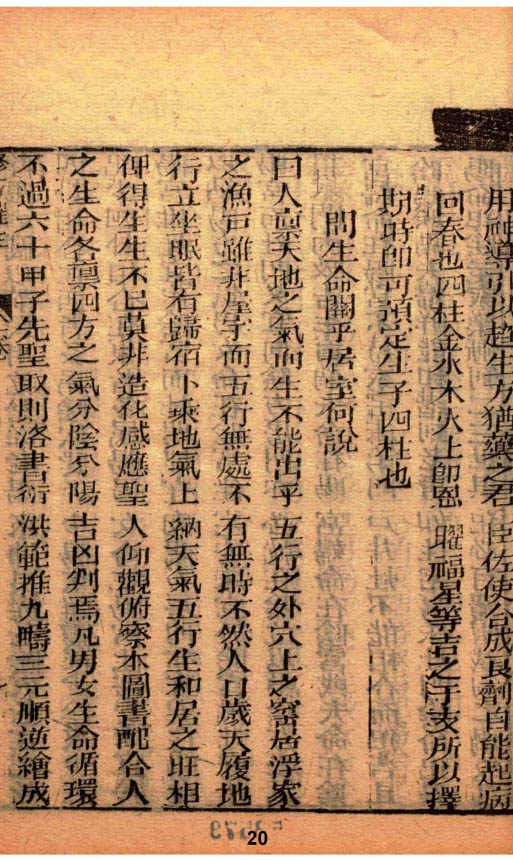 用神導引以趨生方猶藥之君臣佐使合成良劑自能起病
回春也四柱金水木火土卽恩曜福星等吉之干支所以擇
期時卽可預定生子四柱也
問生命關乎居室何說
曰人稟天地之氣而生不能出乎五行之外穴土之窑居浮家
之漁戸雖非屋宇而五行無處不有無時不然人日歲天履地
行立坐眠皆有歸宿卜乘地氣上納天氣五行生和居之旺相
仰得生生不已莫非造化感應聖人仰觀俯察本圖書配合人
之生命各稟四方之氣分陰分陽吉凶判焉凡男女生命循環
不過六十甲子先聖取則洛書衍洪範推九疇三元順逆繪成
20